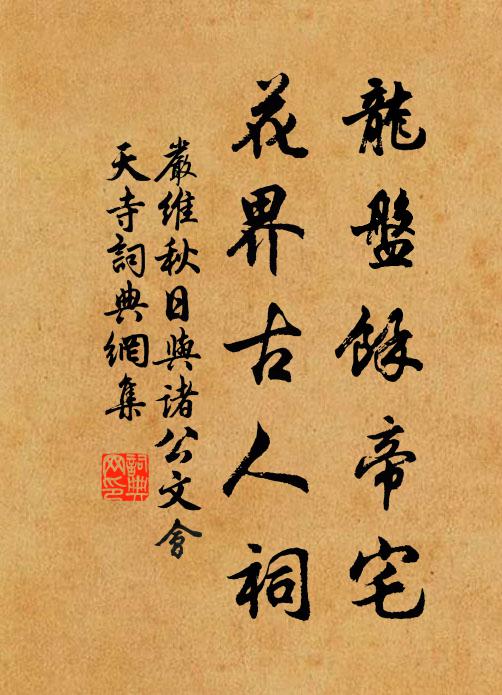 龍盤餘帝宅
花界古人祠
嚴維秋日與諸公文會
天寺詞典網集
詞典网印